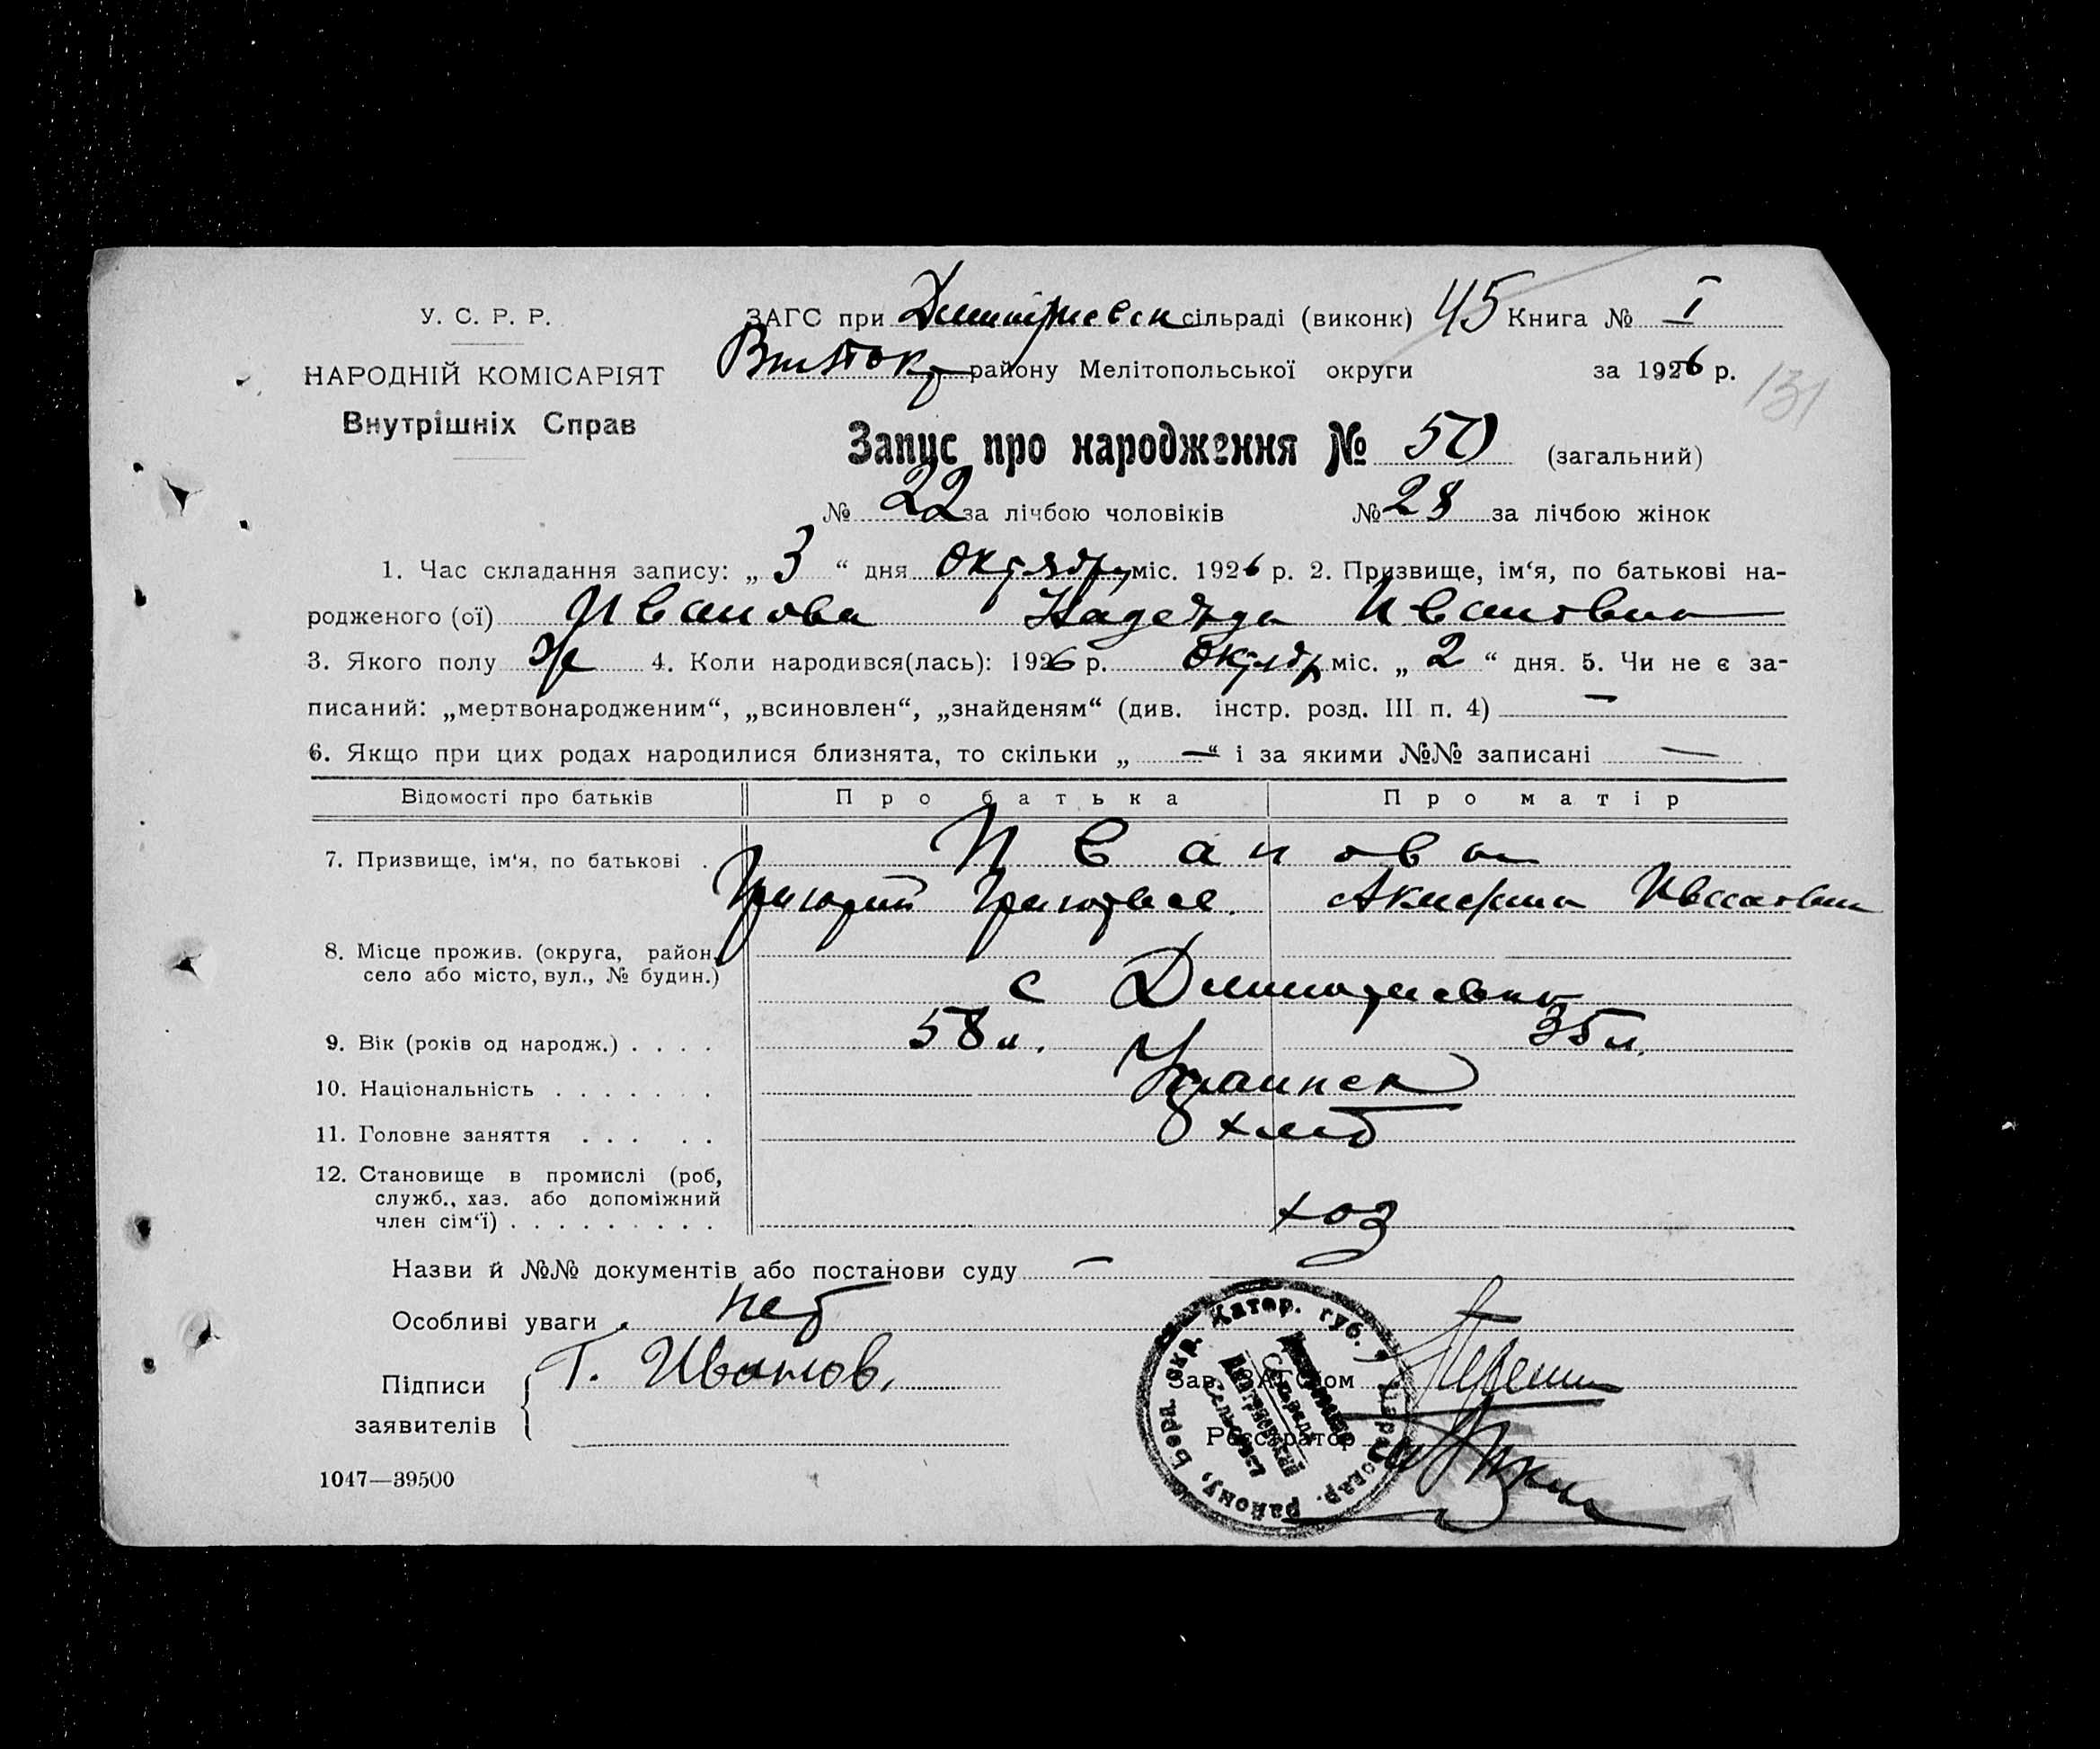 У. С. Р. Р.
НАРОДНІЙ КОМІСАРІЯТ
Внутрішніх Справ
ЗАГС при Димитриевск сільраді (виконк) 45 Книга № I
району Мелітопольської округи за 1926 р.
131
Запис про народження № 50 (загальний)
№ 22 за лічбою чоловіків № 28 за лічбою жінок
1. Час складання запису: „ 3 “ дня октября міс. 1926 р. 2. Призвище, ім‘я, по батькові на-
родженого (ої) Иванова Надежда Ивановна
3. Якого полу ж 4. Коли народився(лась): 1926 р. октябр міс. „ 2 “ дня. 5. Чи не є за-
писаний: „мертвонародженим“, „всиновлен“, „знайденям“ (див. інстр. розд. III п. 4) —
6. Якщо при цих родах народилися близнята, то скільки „ — “ і за якими №№ записані —
Відомості про батьків Про батька Про матір
7. Призвище, ім‘я, по батькові . Ивановы
Григорий Григорьев. Акифина
8. Місце прожив. (округа, район,
село або місто, вул., № будин.) с Димитриевка
9. Вік (років од народж.) . . . . 58 л. 35 л.
10. Національність . . . . . . . Украинск
11. Головне заняття . . . . . хлеб
12. Становище в промислі (роб,
служб., хаз. або допоміжний
член сім‘ї) . . . . . . . . . хоз
Назви й №№ документів або постанови суду —
Особливі уваги . нет
Підписи
заявителів
Г. Иванов.
Зав. ЗАГСом
Реєстратор
Катер. губ.
району, Берд. окр.
1047—39500